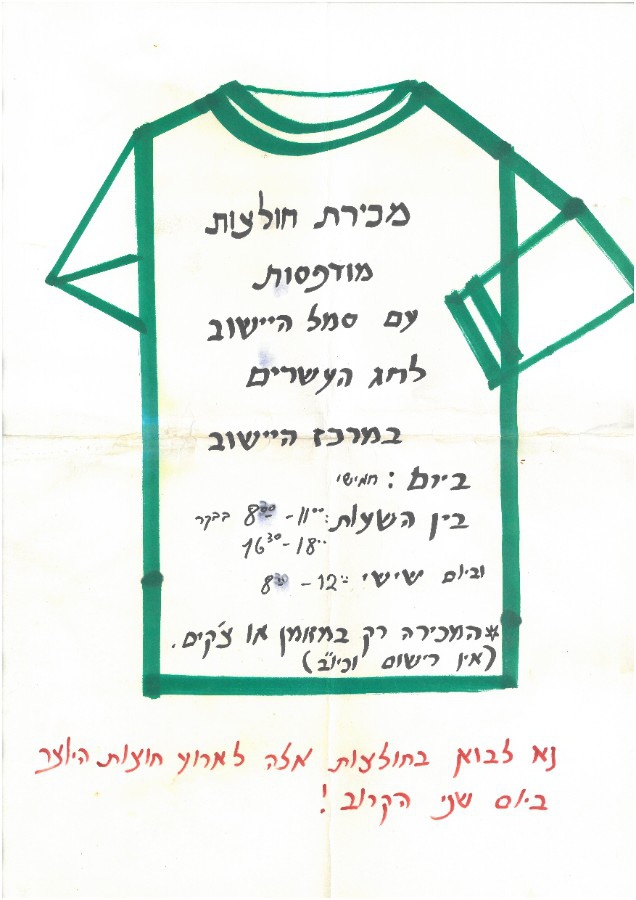 מכירת חולצות
מודפסות
עם סמל היישוב
לחג העשרים
במרכז היישוב
ביום: חמישי
בין השעות: 8³⁰ - 11⁰⁰ בבקר
16³⁰ - 18⁰⁰
וביום שישי 8³⁰ - 12⁰⁰
*המכירה רק במזומן או צ'קים.
(אין רישום וכיו"ב)
נא לבוא בחולצות אלה לארוע חוצות היוצר
ביום שני הקרוב!